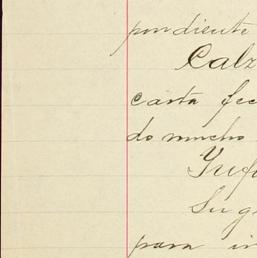 pondiente
Calz
carta fec
do mucho
Su g
para in